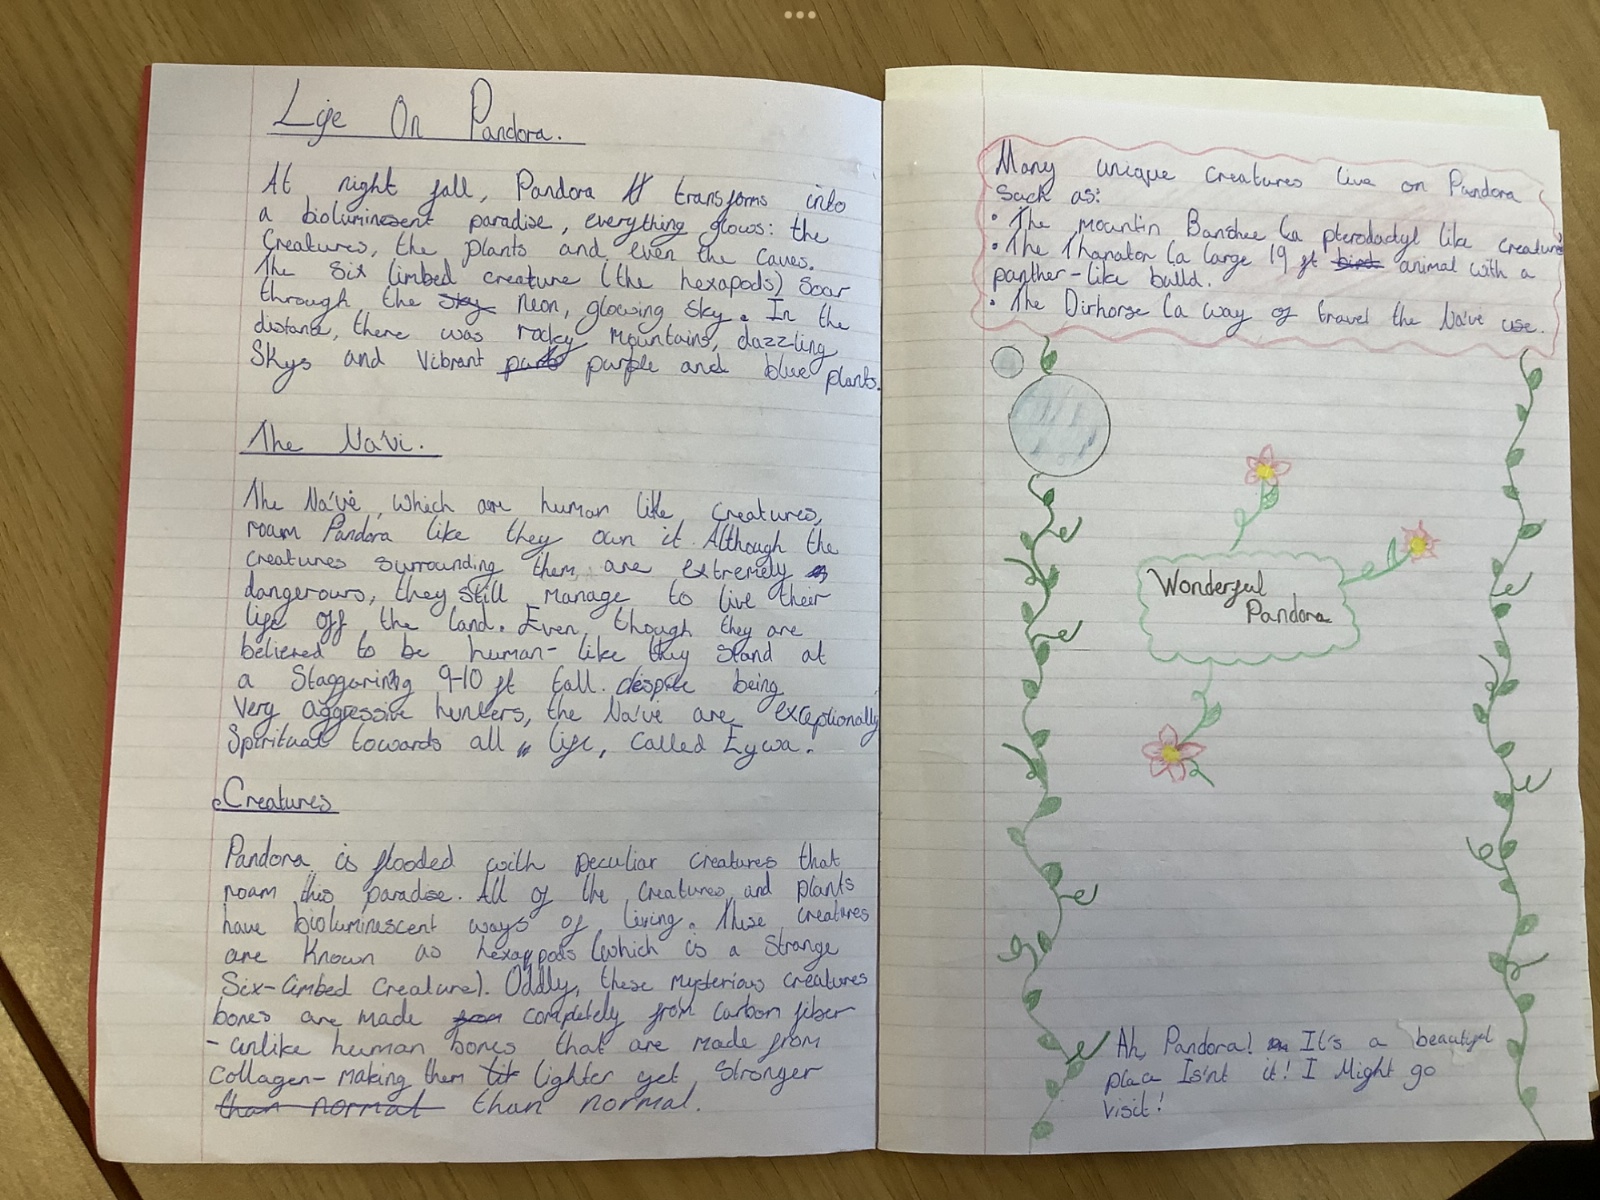 Life On Pandora.
At night fall, Pandora transforms into
a bioluminesent paradise, everything glows: the
Creatures, the plants and even the caves.
The six limbed creature (the hexapods) Soar
through the sky neon, glowing sky. In the
distance, there was rocky mountains, dazz-ling
Skys and vibrant purple and blue plants.
The Na'vi.
The Na'vi, which are human like creatures,
roam Pandora like they own it. Although the
creatures surrounding them are extremely
dangerours, they still manage to live their
life off the land. Even though they are
believed to be human-like they stand at
a Staggering 9-10 ft tall. despite being
very aggressive hunters, the Na'vi are exceptionally
Spiritual towards all life, called Eywa.
Creatures
Pandora is flooded with peculiar creatures that
roam this paradise. All of the creatures and plants
have bioluminescent ways of living. These creatures
are known as hexappods (which is a strange
Six-Limbed Creature). Oddly, these mysterious creatures
bones are made from completely from carbon fiber
- unlike human bones that are made from
collagen- making them lighter yet stronger
than normal than normal.
Many unique creatures live on Pandora
such as:
• The mountin Banshee (a pterodactyl like creature
• The Thanator (a large 19 ft bird animal with a
panther-like build.
• The Dirhorse (a way of travel the Na'vi use.
Wonderful
Pandora
Ah, Pandora! It's a beautiful
place Is'nt it! I Might go
visit!